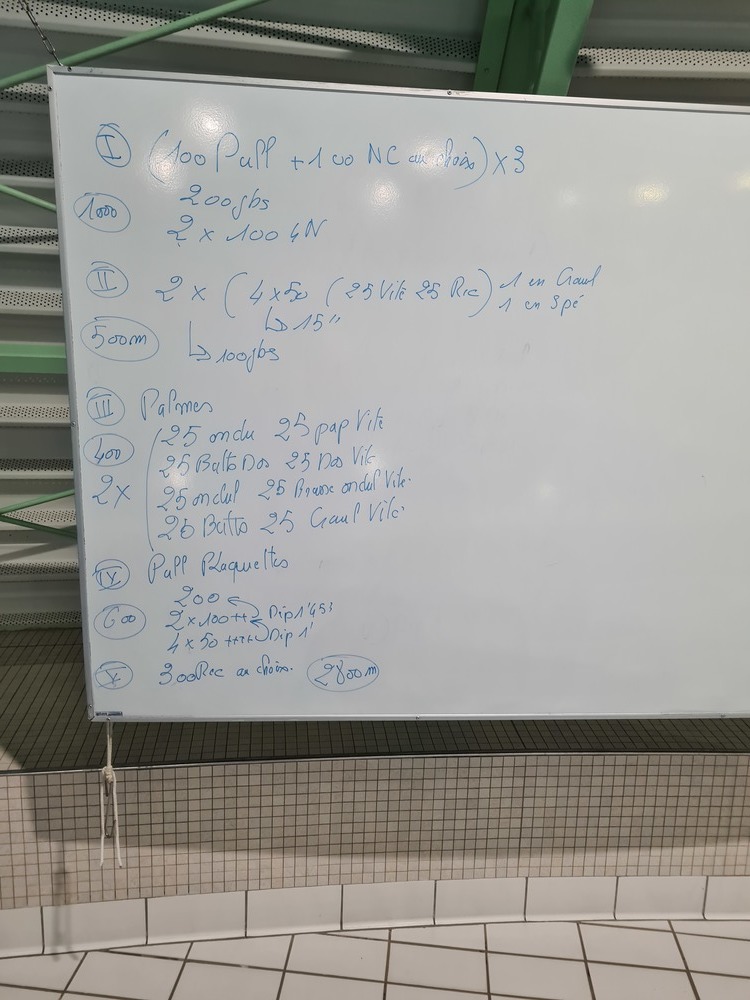 I (100 Pull + 100 NC au choix) x 3
1000 200 jbs
2 x 100 4N
II 2 x ( 4x50 ( 25 Vite 25 Rec) 1 en Crawl
1 en Spé
↳ 15"
500m ↳ 100 jbs
III Palmes
400 25 ondu 25 pap Vite
25 Batts Dos 25 Dos Vite
2x 25 ondul 25 Brasse ondul Vite.
25 Batts 25 Crawl Vite
IV Pull Plaquettes
200
600 2x100 ++ Dép 1'45
4x50 ++++ Dép 1'
V 300 Rec au choix. 2800m